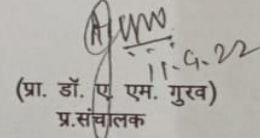 11.4.22
(प्रा. डॉ. ए. एम. गुरव)
प्र.संचालक